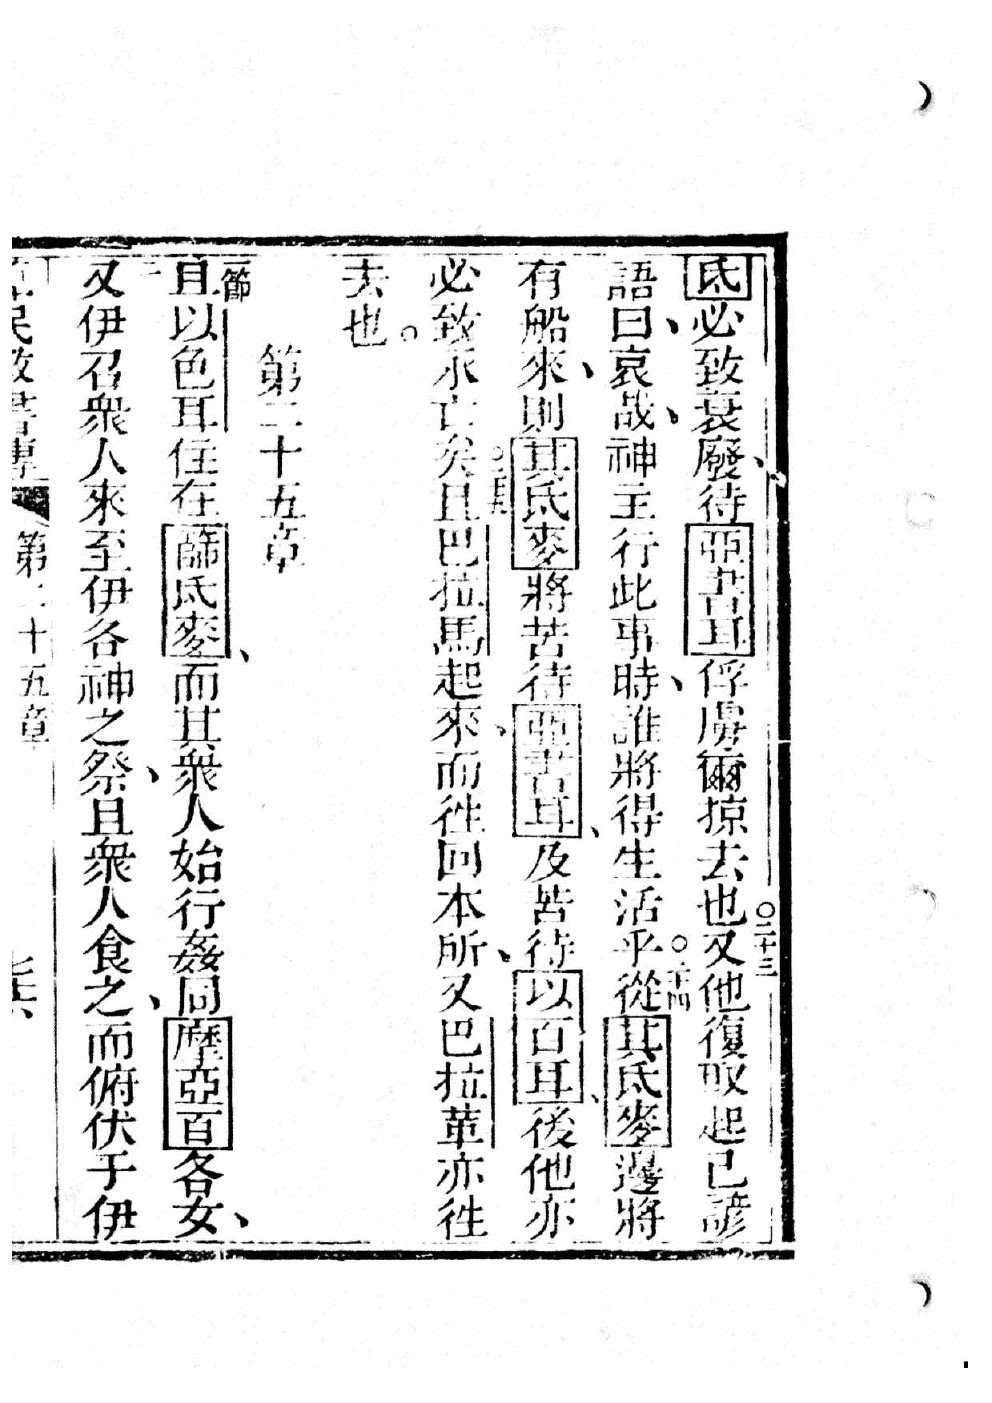 氐必致衰廢待亞書耳俘虜爾掠去也○二十三又他復取起己諺
語曰哀哉神主行此事時誰將得生活乎○二十四從其氐麥邊將
有船來則其氐麥將苦待亞書耳及苦待以百耳後他亦
必致永亡矣○二十五且巴拉馬起來而徃回本所又巴拉葷亦徃
去也。
第二十五章
一節且以色耳住在篩氐麥而其衆人始行姦同摩亞百各女
二又伊召衆人來至伊各神之祭且衆人食之而俯伏于伊
民數書傳 第二十五章 七十六